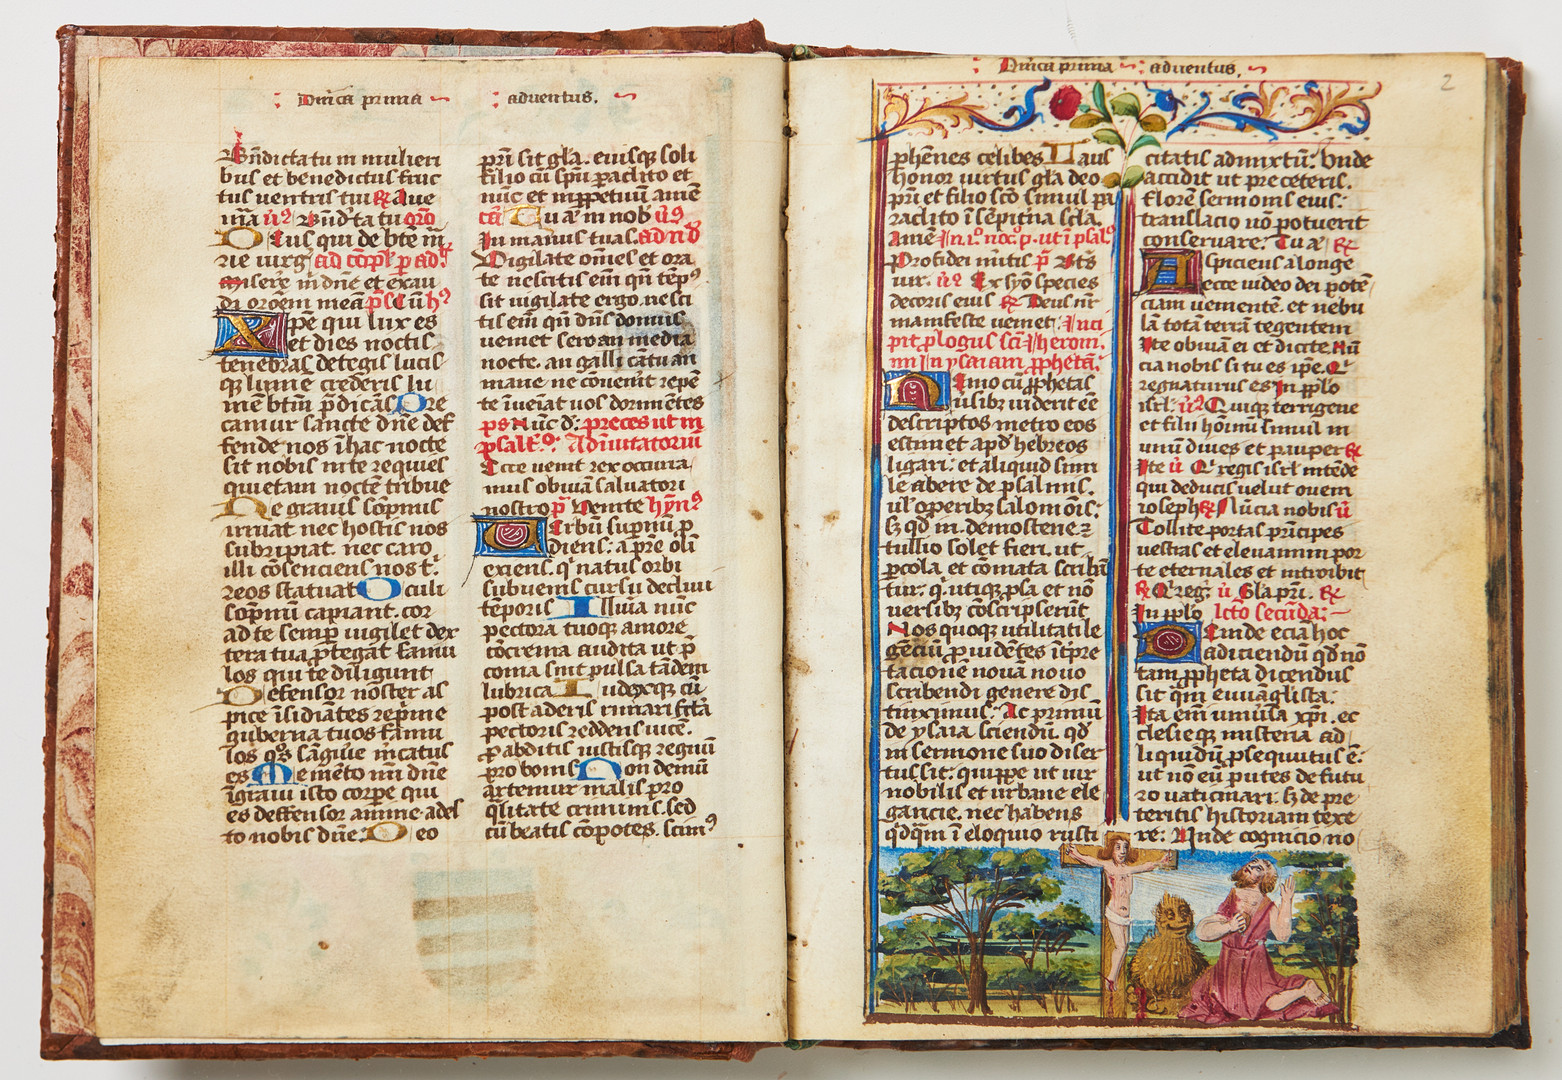 Dnica prima adventus.
Bn̄dicta tu in mulieri
bus et benedictus fruc
tus ventris tui ℟ Aue
mīa v̄s Bn̄d̄ta tu or̄o
Deus qui de bt̄e m̄
rie virḡ ad cōpl̄ p̄ ad
misere m̄ dn̄e et exau
di or̄oem meā ps̄ Cū h̄s
Xpe qui lux es
et dies noctis
tenebras detegis lucis
q̄ lumē crederis lu
mē btm̄ p̄dicās Pre
camur sancte dn̄e def
fende nos ī hac nocte
sit nobis in te requies
quietam noctē tribue
Ne grauis sōpnus
irruat nec hostis nos
subripiat. nec caro
illi cōsenciens nos t̄
reos statuat Oculi
sōpnū capiant. cor
ad te semp̄ vigilet dex
tera tua p̄tegat famu
los qui te diligunt
Defensor noster as
pice īsidiātes rep̄me
guberna tuos famu
los q̄s sāguīe m̄catus
es Memēto nr̄i dn̄e
ī graui isto corpe qui
es deffensor anime ades
to nobis dn̄e. Deo
pr̄i sit gl̄a. eiusq̄ soli
filio cū sp̄u paclito et
nūc et inppetuū amē
Tu aē in nob v̄s
In manus tuas. ad nō
Vigilate om̄es et ora
te nescitis em̄ qn̄ tēps
sit vigilate ergo. nesci
tis em̄ qn̄ dn̄s domus
veniet sero an media
nocte. an galli cātu an
mane ne cōuenit repē
te īueīat vos dormiētes
ps Nūc d̄: preces ut in
psalt̄.o: Adīuitatoriū
Ecce venit rex occurra
mus obuiā saluatori
nostro p̄ Venite hȳns
Verbū supnū p̄
diens: a pr̄e oli
exiens. q̄ natus orbi
subuenis cursu decliui
tēporis Illuīa nūc
pectora tuoq̄ amore
cōcrema audita ut p̄
conia sint pulsa tādem
lubrica Iudexq̄ cū
post aderis rimari fctā
pectoris reddens vicē
p abditis iustisq̄ regnū
pro bonis Non demū
artemur malis pro
q̄litate criminis. sed
cū beatis cōpotes. scim̄s
Dnica prima adventus.
2
phēnes celibes Laus
honor virtus gl̄a deo
pr̄i et filio sc̄o simul pa
raclito ī sēpit̄na sc̄la.
Amē In io. noco. p. ut ī psalo
Pro fidei mitis p̄ Bt̄s
vir. v̄s Ex syō species
decoris eius ℟ Deus nr̄
manifeste veniet. Inci
pit plogus sci Iheroni
mi in ysaiam pphetā.
Nemo cū pphetas
v̄sibz viderit eē
descriptos metro eos
estimet apd̄ hebreos
ligari: et aliquid simi
le abere de psalmis.
ul̄ opibz salomōis:
Sz qd̄ in demostene ⁊
tullio solet fieri. ut
p cola et comata scribā
tur: q̄ utiq̄ psa et nō
versibz cōscripserūt
Nos quoq̄ utilitati le
gēciū puidētes ītpre
tacionē nouā nouo
scribendi genere dis
tinximus. Ac primū
de ysaia sciendū. qd̄
in sermone suo diser
tus sit: quippe ut vir
nobilis et urbane ele
gancie. nec habens
qd̄qm̄ ī eloquio rusti
citatis admixtū: Vnde
accidit ut pre ceteris.
florē sermonis eius:
translacio nō potuerit
conseruare: Tu aē ℟
Aspiciens a longe
ecce video dei potē
ciam venientē. et nebu
lā totā terrā tegentem
Ite obuiā ei et dicite. Nū
cia nobis si tu es ip̄e. Q
regnaturus es In pplo
isrl̄. v̄s Quiq̄ terrigene
et filii hoīnū simul in
unū diues et pauper ℟
Ite v̄ Q̄ regis isrl̄ intēde
qui deducis velut ouem
ioseph ℟ Nūcia nobis v̄
Tollite portas prīcipes
vestras et eleuamini por
te eternales et introibit
℟ Q̄ reḡ: v̄ Gl̄a pr̄i. ℟
In pplo lcto secūda:
Deinde eciā hoc
adiciendū qd̄ nō
tam ppheta dicendus
sit qm̄ euuāgl̄ista:
Ita em̄ uniu̅sa xp̄i. ec
clesieq̄ misteria ad
liquidū psequutus ē:
ut nō eū putes de futu
ro vaticinari: sz de pre
teritis historiam texe
re: Unde cognicio no